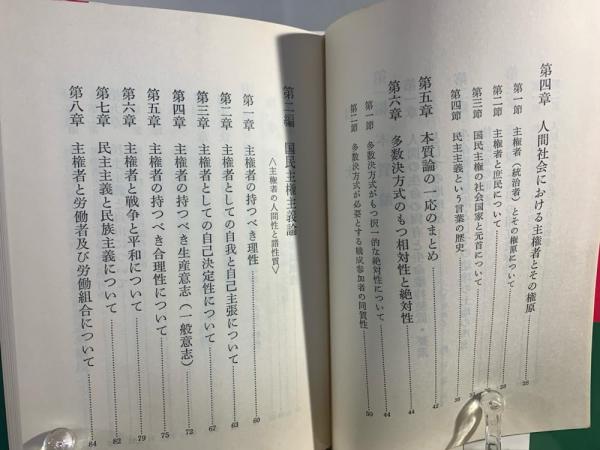 第四章 人間社会における主権者とその権原 28
第一節 主権者(統治者)とその権原について 28
第二節 主権者と庶民について
第三節 国民主権の社会国家と元首について
第四節 民主主義という言葉の歴史
第五章 本質論の一応のまとめ 42
第六章 多数決方式のもつ相対性と絶対性 44
第一節 多数決方式がもつ択一的な絶対性について 44
第二節 多数決方式が必要とする構成参加者の同質性 50
第二編 国民主権主義論
〈主権者の人間性と諸性質〉
第一章 主権者の持つべき理性 60
第二章 主権者としての自我と自己主張について 63
第三章 主権者としての自己決定性について 67
第四章 主権者の持つべき生産意志(一般意志) 72
第五章 主権者の持つべき合理性について 75
第六章 主権者と戦争と平和について 79
第七章 民主主義と民族主義について 82
第八章 主権者と労働者及び労働組合について 84